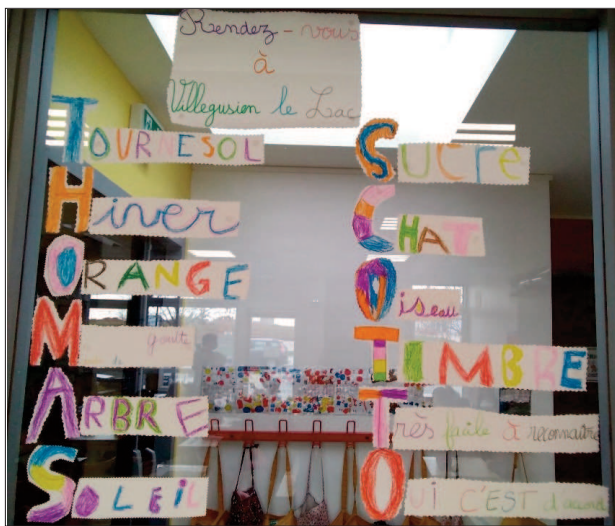 Rendez-vous
à
Villegusien le Lac
TOURNESOL
Hiver
ORANGE
M goutte
ARBRE
SOLEIL
SUCre
CHAT
Oiseau
TIMBRE
Très facile à reconnaître
OUI C'EST d'accord